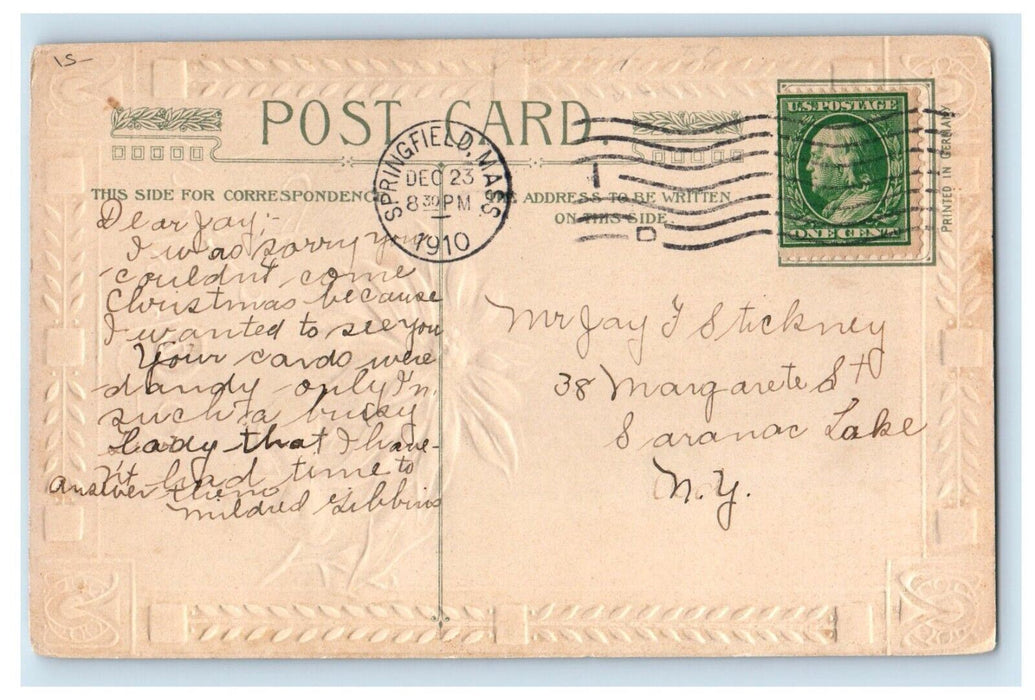 15-
POST CARD.
THIS SIDE FOR CORRESPONDENC
E ADDRESS TO BE WRITTEN
ON THIS SIDE.
SPRINGFIELD, MASS.
DEC 23
8 30 PM
1910
U.S. POSTAGE
ONE CENT
PRINTED IN GERMANY
Dear Jay;-
I was sorry you
couldn't come
Christmas because
I wanted to see you
Your cards were
dandy only I'm
such a busy
lady that I have-
n't had time to
answer them
Mildred Gibbins
Mr Jay F Stickney
38 Margarete St
Saranac Lake
N.Y.